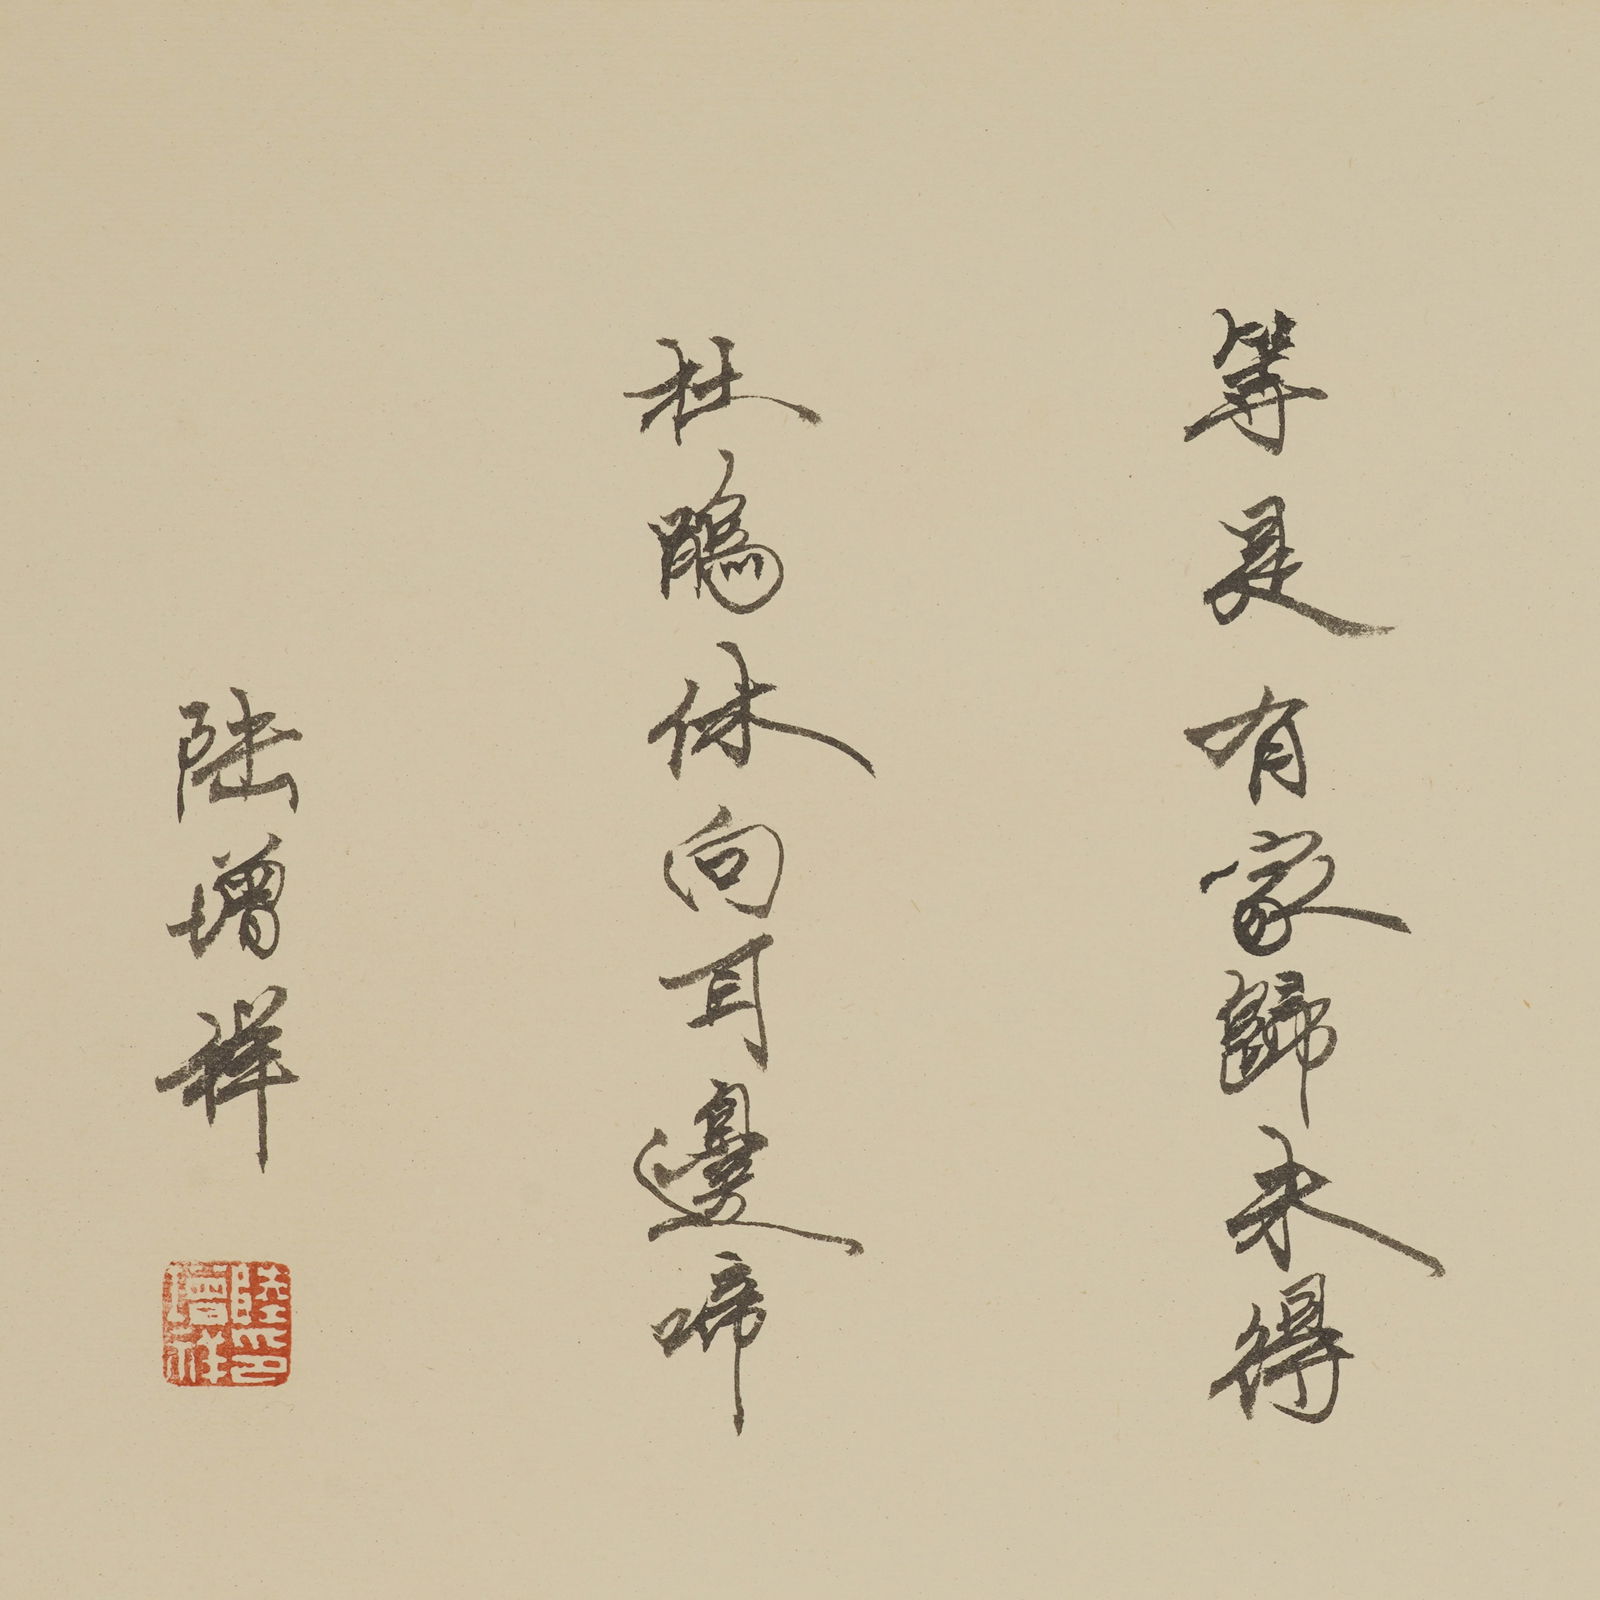 等是有家歸未得
杜鵑休向耳邊啼
陸增祥
陸增祥印